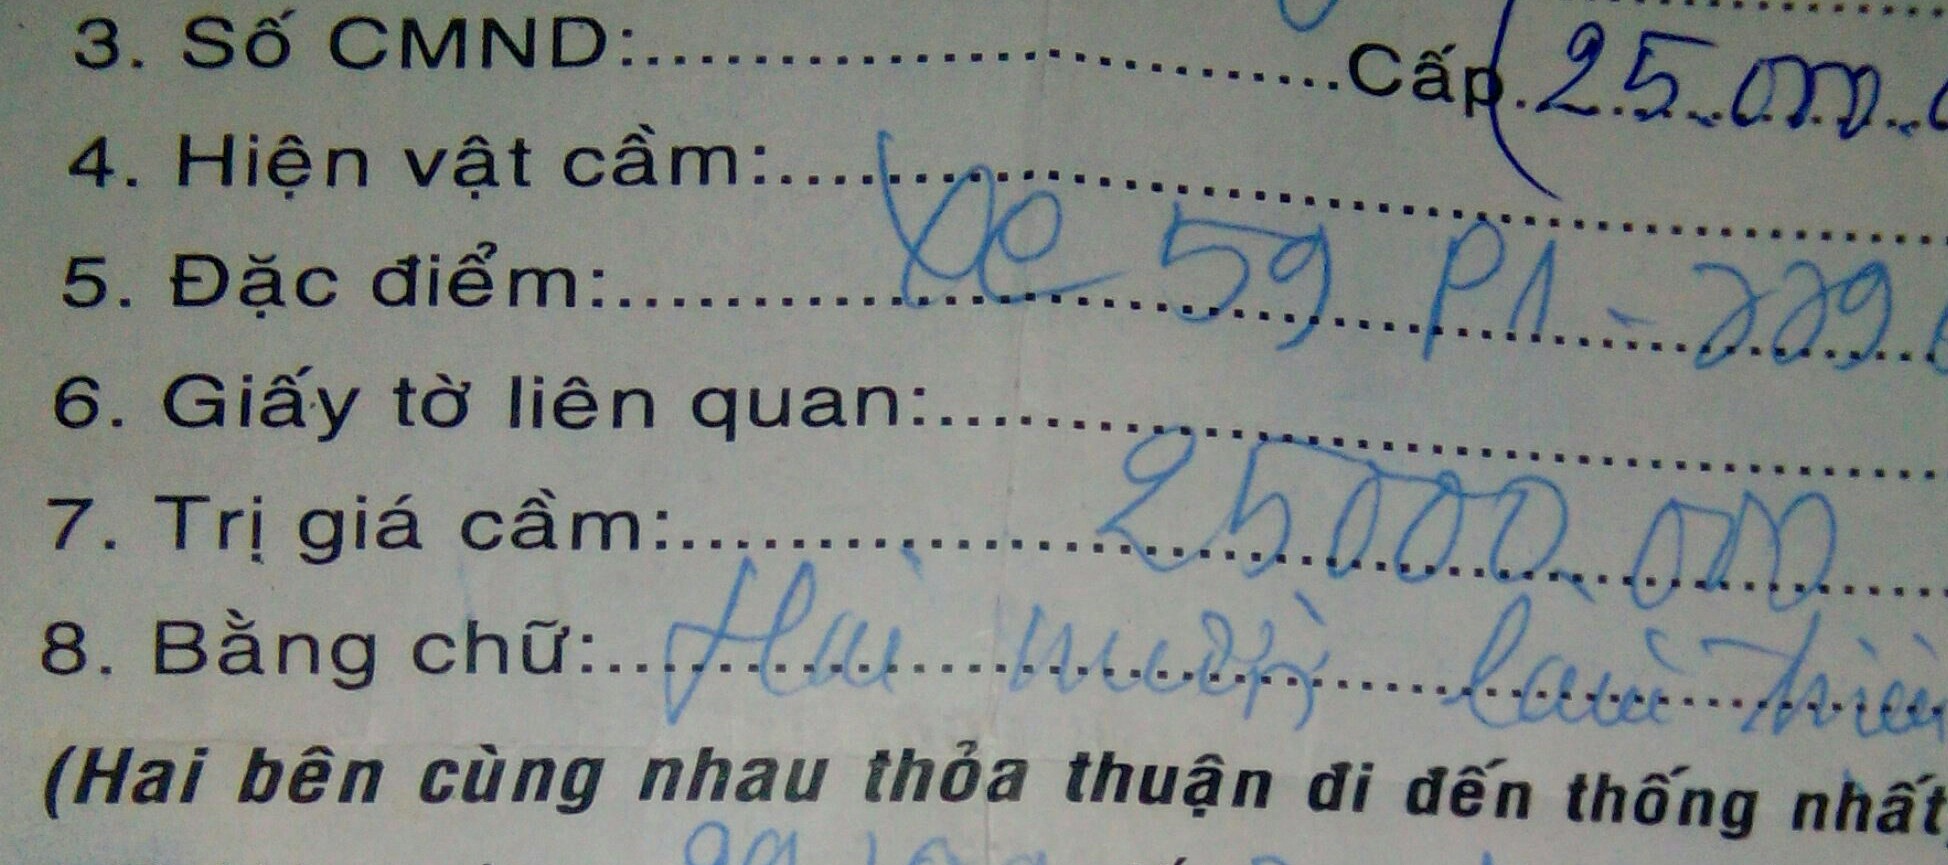 3. Số CMND:..............................Cấp.(25.000.
4. Hiện vật cầm:..............................
5. Đặc điểm:.......... Xe 59 P1 - 229
6. Giấy tờ liên quan:..............................
7. Trị giá cầm:.......... 25000.000
8. Bằng chữ:.. Hai mươi lăm triệu
(Hai bên cùng nhau thỏa thuận đi đến thống nhất